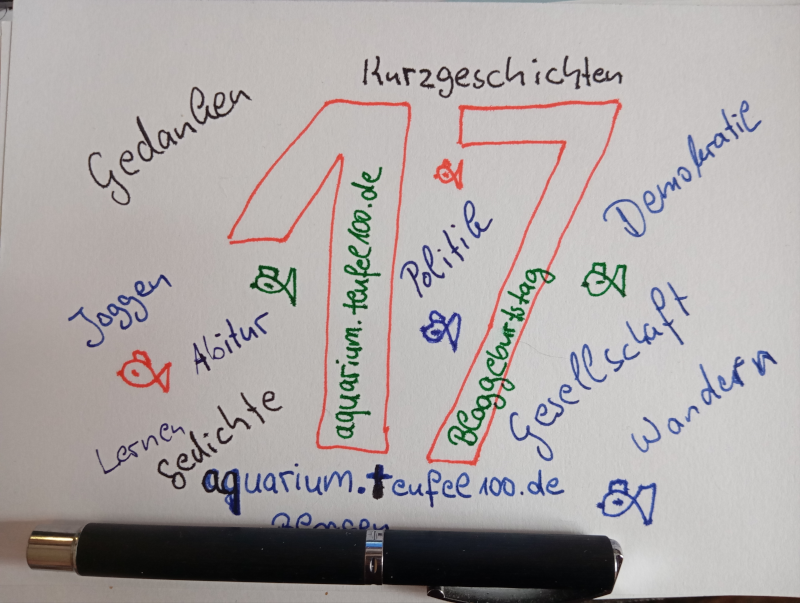 Kurzgeschichten
Gedanken
Demokratie
17
aquarium.teufel100.de
Politik
Bloggeburtstag
Joggen
Abitur
Gesellschaft
Wandern
Lernen
Gedichte
aquarium.teufel100.de